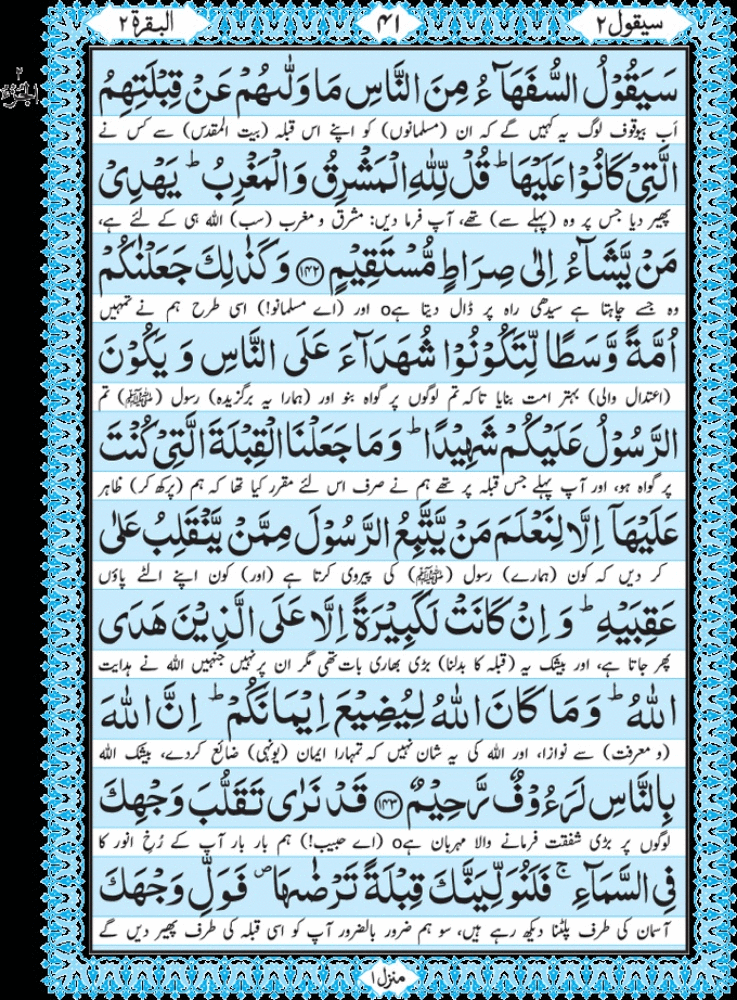 سیقول ٢
٤١
البقرة ٢
الجزء ٢
سَيَقُوْلُ السُّفَهَآءُ مِنَ النَّاسِ مَا وَلّٰىهُمْ عَنْ قِبْلَتِهِمُ
اَب بیوقوف لوگ یہ کہیں گے کہ ان (مسلمانوں) کو اپنے اس قبلہ (بیت المقدس) سے کس نے
الَّتِيْ كَانُوْا عَلَيْهَا ؕ قُلْ لِّلّٰهِ الْمَشْرِقُ وَالْمَغْرِبُ ؕ يَهْدِيْ
پھیر دیا جس پر وہ (پہلے سے) تھے، آپ فرما دیں: مشرق و مغرب (سب) اللہ ہی کے لئے ہے،
مَنْ يَّشَآءُ اِلٰى صِرَاطٍ مُّسْتَقِيْمٍ ﴿١٤٢﴾ وَكَذٰلِكَ جَعَلْنٰكُمْ
وہ جسے چاہتا ہے سیدھی راہ پر ڈال دیتا ہےo اور (اے مسلمانو!) اسی طرح ہم نے تمہیں
اُمَّةً وَّسَطًا لِّتَكُوْنُوْا شُهَدَآءَ عَلَى النَّاسِ وَيَكُوْنَ
(اعتدال والی) بہتر امت بنایا تاکہ تم لوگوں پر گواہ بنو اور (ہمارا یہ برگزیدہ) رسول (ﷺ) تم
الرَّسُوْلُ عَلَيْكُمْ شَهِيْدًا ؕ وَمَا جَعَلْنَا الْقِبْلَةَ الَّتِيْ كُنْتَ
پر گواہ ہو، اور آپ پہلے جس قبلہ پر تھے ہم نے صرف اس لئے مقرر کیا تھا کہ ہم (پرکھ کر) ظاہر
عَلَيْهَاۤ اِلَّا لِنَعْلَمَ مَنْ يَّتَّبِعُ الرَّسُوْلَ مِمَّنْ يَّنْقَلِبُ عَلٰى
کر دیں کہ کون (ہمارے) رسول (ﷺ) کی پیروی کرتا ہے (اور) کون اپنے الٹے پاؤں
عَقِبَيْهِ ؕ وَاِنْ كَانَتْ لَكَبِيْرَةً اِلَّا عَلَى الَّذِيْنَ هَدَى
پھر جاتا ہے، اور بیشک یہ (قبلہ کا بدلنا) بڑی بھاری بات تھی مگر ان پر نہیں جنہیں اللہ نے ہدایت
اللّٰهُ ؕ وَمَا كَانَ اللّٰهُ لِيُضِيْعَ اِيْمَانَكُمْ ؕ اِنَّ اللّٰهَ
(و معرفت) سے نوازا، اور اللہ کی یہ شان نہیں کہ تمہارا ایمان (یونہی) ضائع کردے، بیشک اللہ
بِالنَّاسِ لَرَءُوْفٌ رَّحِيْمٌ ﴿١٤٣﴾ قَدْ نَرٰى تَقَلُّبَ وَجْهِكَ
لوگوں پر بڑی شفقت فرمانے والا مہربان ہےo (اے حبیب!) ہم بار بار آپ کے رُخِ انور کا
فِي السَّمَآءِ ۚ فَلَنُوَلِّيَنَّكَ قِبْلَةً تَرْضٰىهَا ۪ فَوَلِّ وَجْهَكَ
آسمان کی طرف پلٹنا دیکھ رہے ہیں، سو ہم ضرور بالضرور آپ کو اسی قبلہ کی طرف پھیر دیں گے
منزل ١